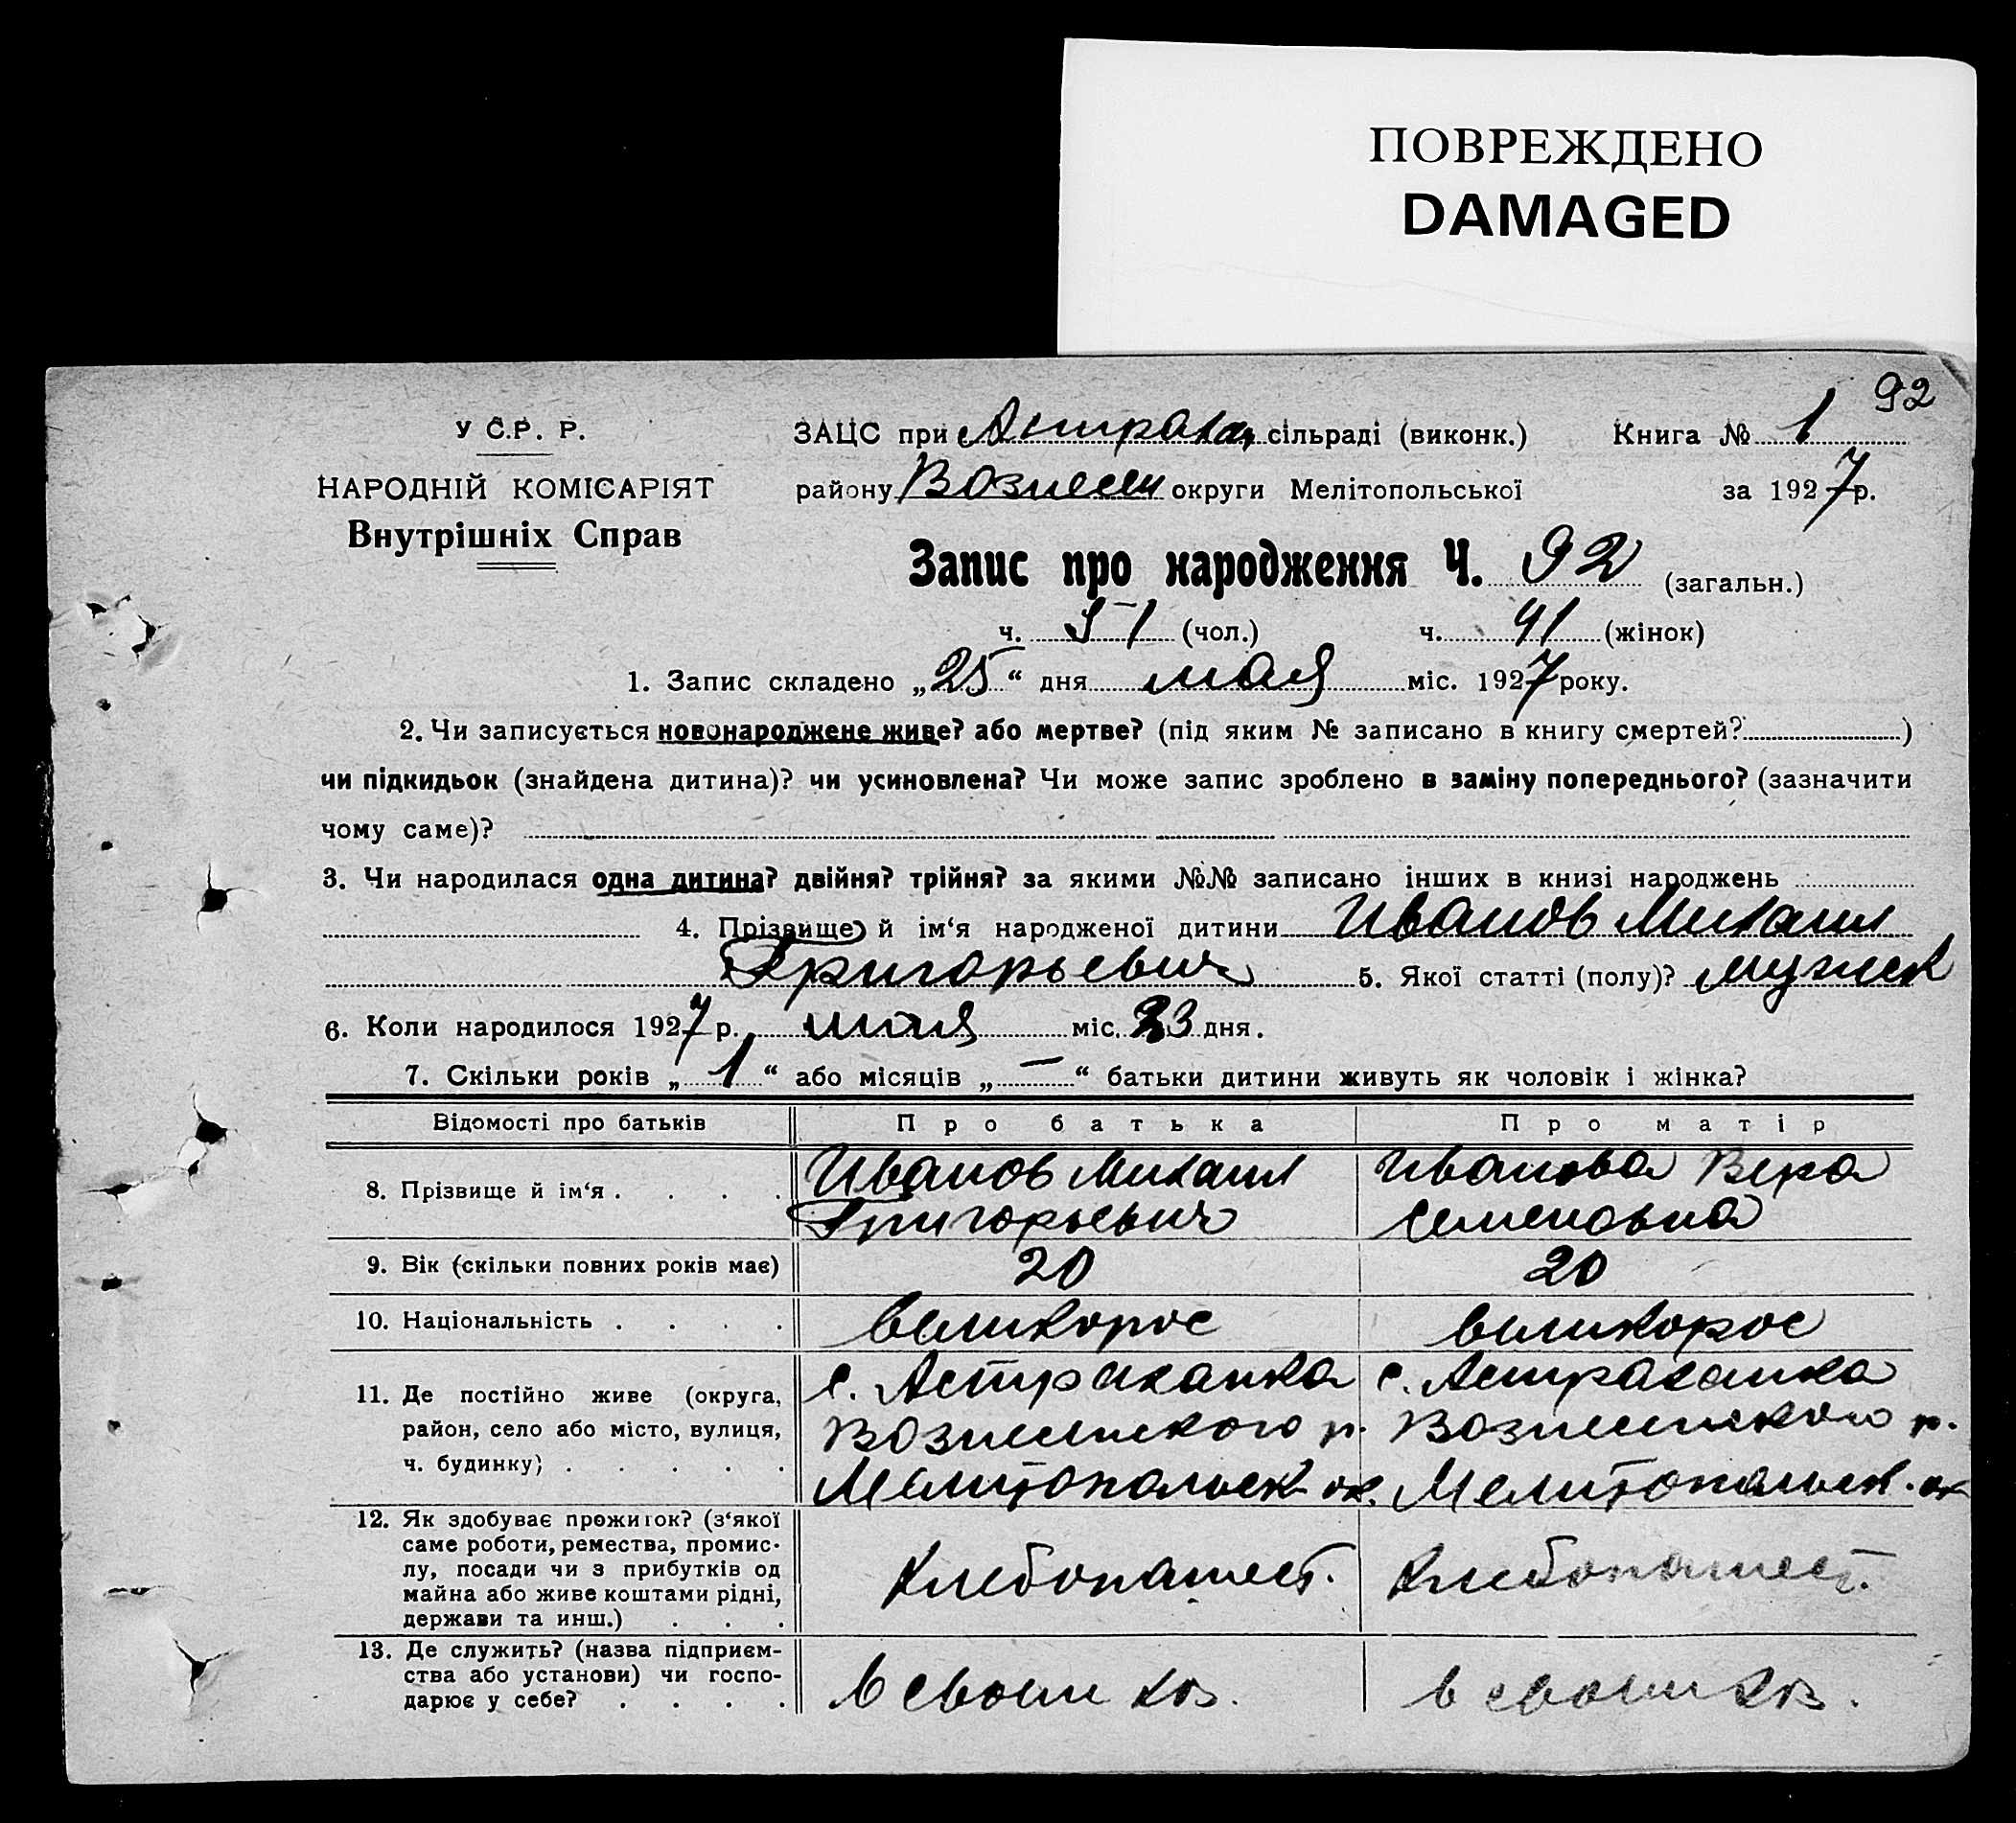 ПОВРЕЖДЕНО
DAMAGED
92
У С.Р. Р.
НАРОДНІЙ КОМІСАРІЯТ
Внутрішніх Справ
ЗАЦС при Астрахан сільраді (виконк.) Книга № 1
району Вознесен округи Мелітопольської за 1927 р.
Запис про народження Ч. 92 (загальн.)
ч. 51 (чол.) ч. 41 (жінок)
1. Запис складено „25“ дня мая міс. 1927 року.
2. Чи записується новонароджене живе? або мертве? (під яким № записано в книгу смертей? )
чи підкидьок (знайдена дитина)? чи усиновлена? Чи може запис зроблено в заміну попереднього? (зазначити
чому саме)?
3. Чи народилася одна дитина? двійня? трійня? за якими №№ записано інших в книзі народжень
4. Прізвище й ім‘я народженої дитини Иванов Михаил
Григорьевич 5. Якої статті (полу)? мужск
6. Коли народилося 1927 р. мая міс. 23 дня.
7. Скільки років „1“ або місяців „—“ батьки дитини живуть як чоловік і жінка?
Відомості про батьків Про батька Про матір
8. Прізвище й ім‘я . . . . Иванов Михаил Иванова Вера
Григорьевич Семеновна
9. Вік (скільки повних років має) 20 20
10. Національність . . . . великорос великорос
11. Де постійно живе (округа, с. Астраханка с. Астраханка
район, село або місто, вулиця, Вознесенского р. Вознесенского р.
ч. будинку) . . . . . Мелитопольск ок. Мелитопольск. ок
12. Як здобуває прожиток? (з‘якої
саме роботи, ремества, промис-
лу, посади чи з прибутків од Хлебопашест. Хлебопашест.
майна або живе коштами рідні,
держави та инш.) . . .
13. Де служить? (назва підприєм-
ства або установи) чи госпо- в своем хоз. в своем хоз.
дарює у себе? . . . .